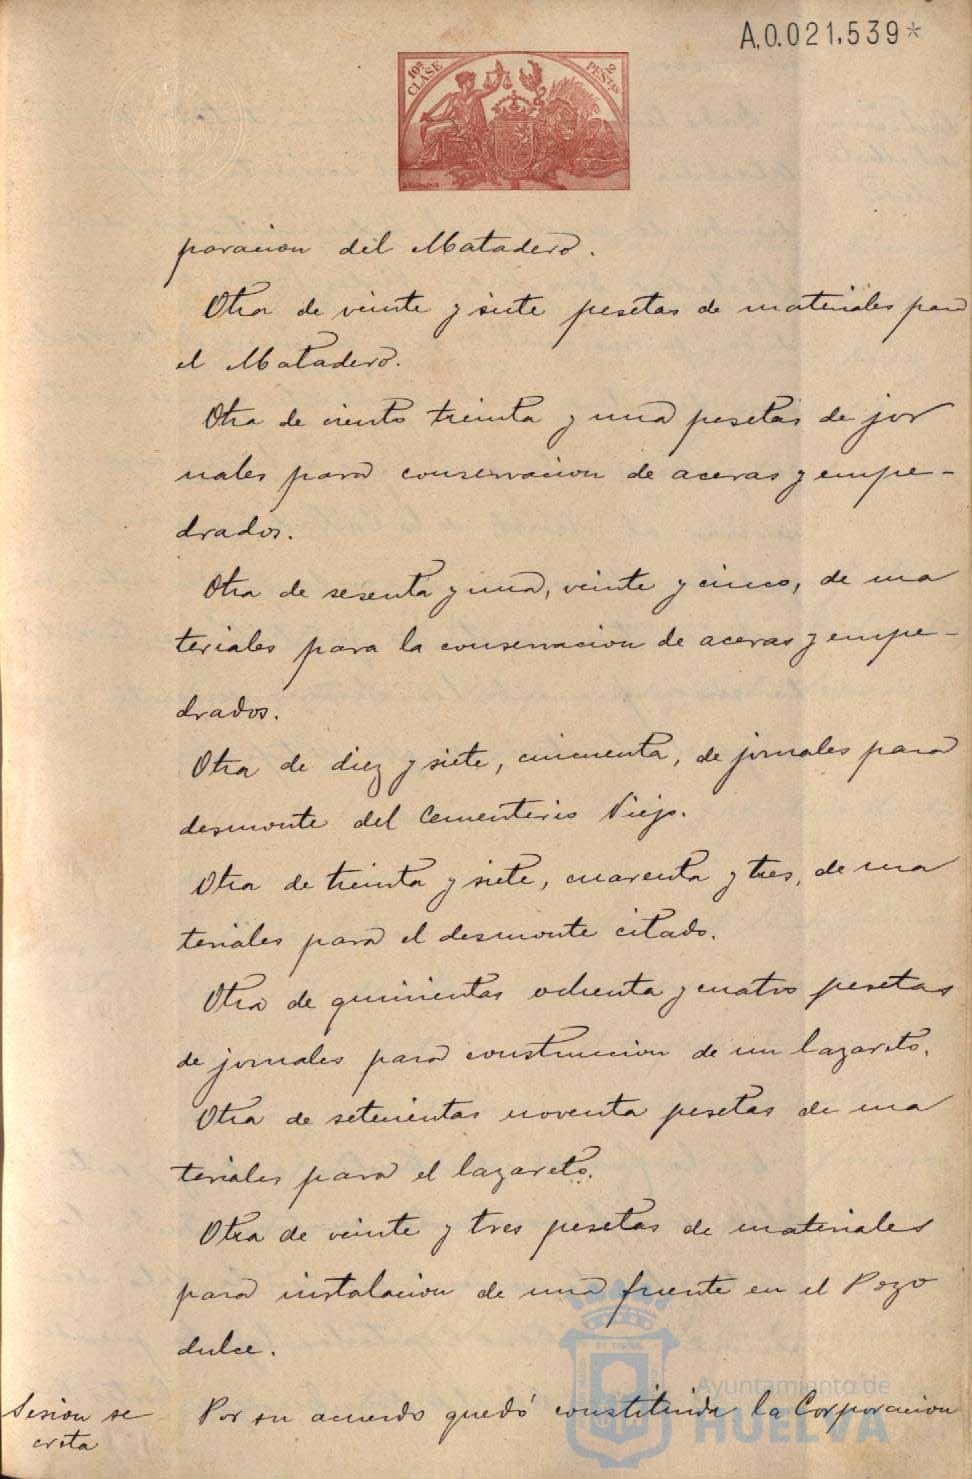 A,0.021,539*
10ª CLASE
2 PESETAS
paracion del Matadero.
Otra de veinte y siete pesetas de materiales para
el Matadero.
Otra de ciento treinta y una pesetas de jor
nales para conservacion de aceras y empe-
drados.
Otra de sesenta y una, veinte y cinco, de ma
teriales para la conservacion de aceras y empe-
drados.
Otra de diez y siete, cincuenta, de jornales para
desmonte del Cementerio Viejo.
Otra de treinta y siete, cuarenta y tres, de ma
teriales para el desmonte citado.
Otra de quinientas ochenta y cuatro pesetas
de jornales para construccion de un lazareto.
Otra de setecientas noventa pesetas de ma
teriales para el lazareto.
Otra de veinte y tres pesetas de materiales
para instalacion de una fuente en el Pozo
dulce.
Sesion se
creta
Por su acuerdo quedó constituida la Corporacion
Ayuntamiento de
HUELVA